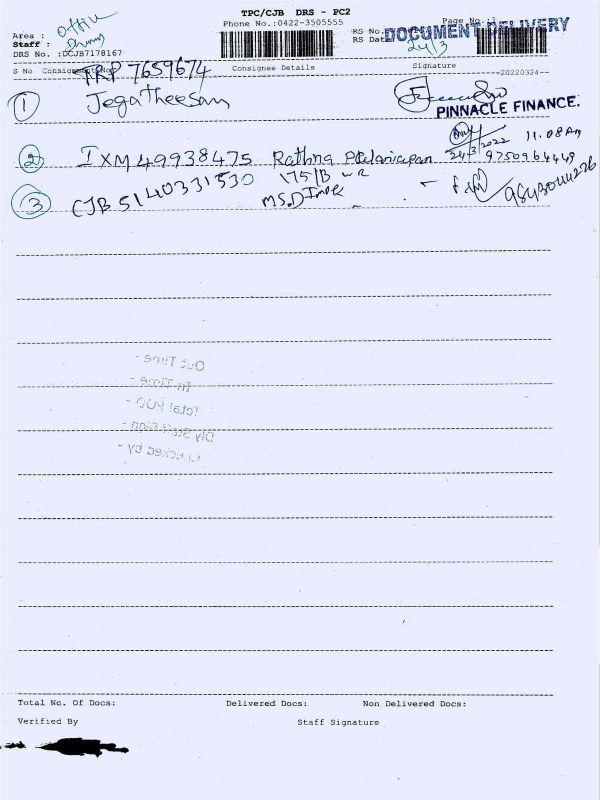 TPC/CJB DRS - PC2
Phone No.:0422-3505555
Page No.
Area :
Staff :
DRS No. :DCJB7178167
RS No.
RS Date
24/3
DOCUMENT DELIVERY
S No Consignment No Consignee Details Signature
20220324
TRP 7659674
1 Jegatheesan
PINNACLE FINANCE.
2 IXM 49938475 Rathna 24/3/2022 11.08 Am
9750964449
3 CJB 5140331530 175/B
MS.D
9843044226
Out Time -
In-Time -
Total POD -
Dly Staff Sign -
Checked by -
Total No. Of Docs: Delivered Docs: Non Delivered Docs:
Verified By Staff Signature